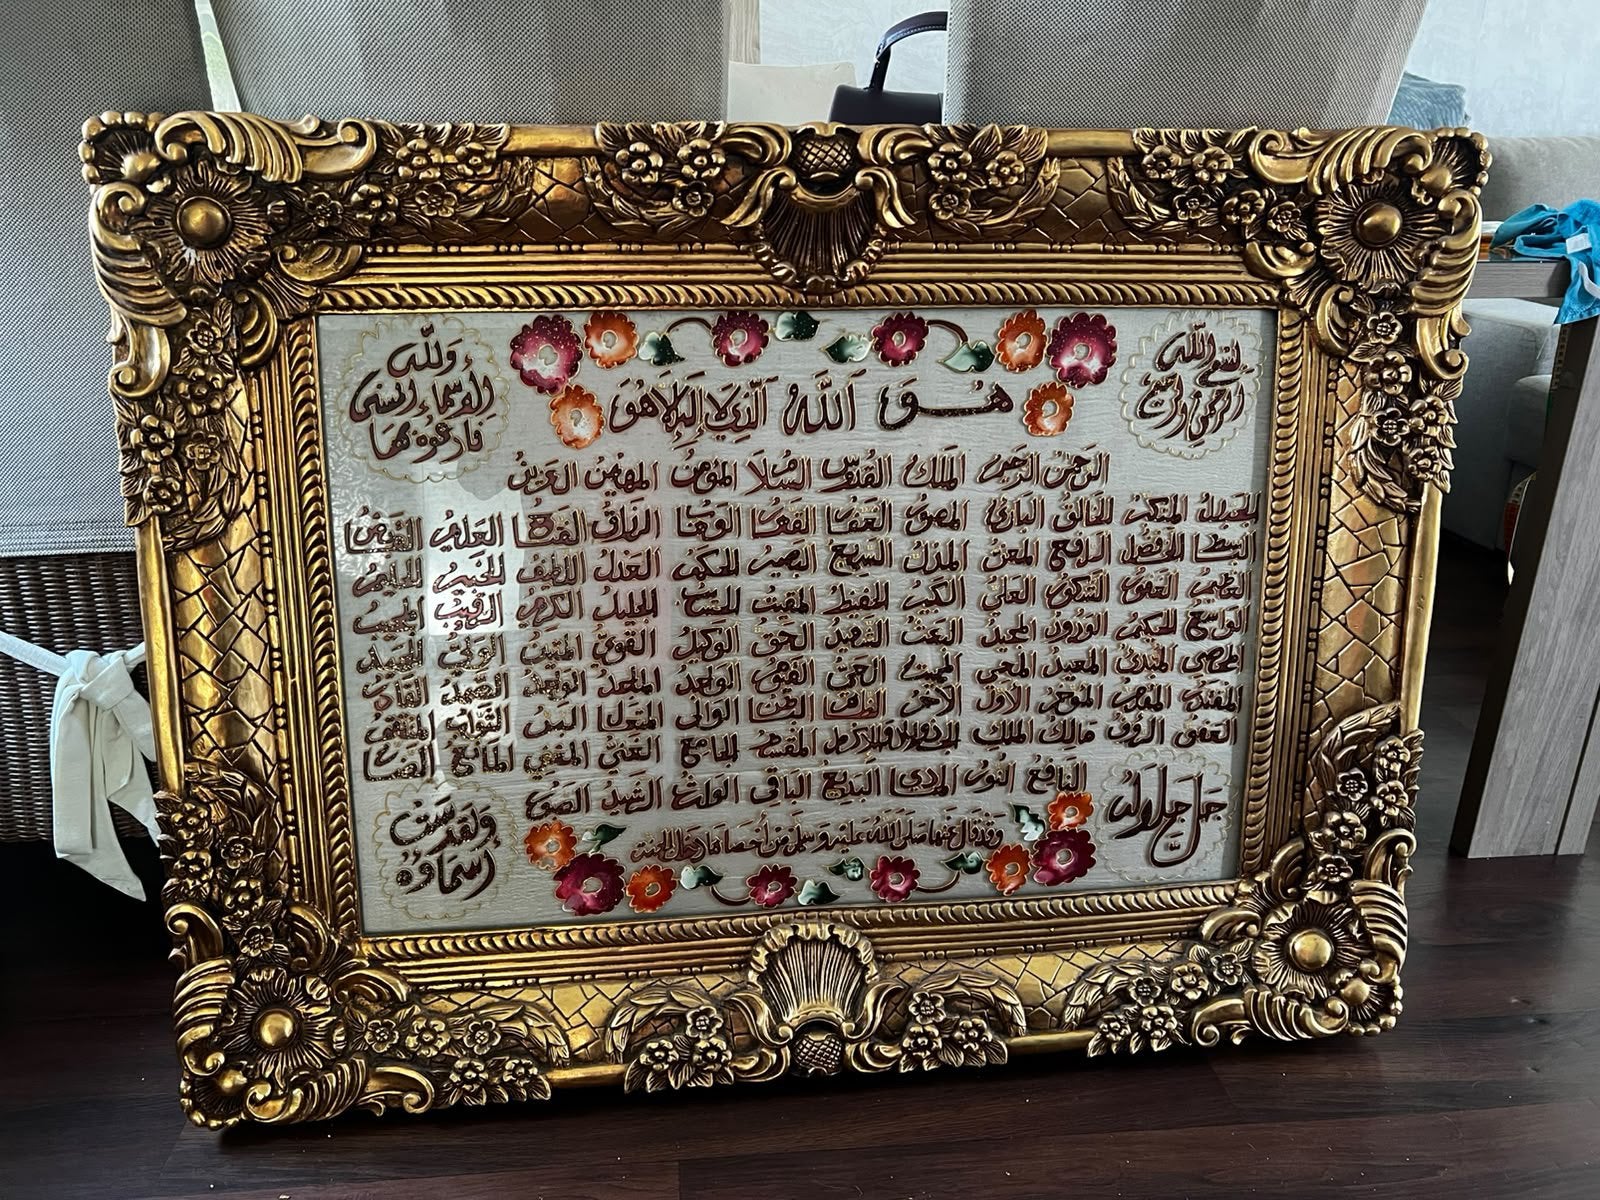 بسم الله
الرحمن الرحيم
ولله
الأسماء الحسنى
فادعوه بها
هو الله الذي لا إله إلا هو
الرحمن الرحيم الملك القدوس السلا المؤمن المهيمن العزيز
المتكبر الخالق البارئ المصور الغفا القها الوها الرزاق الفتا العليم القابض
البسط الخافض الرافع المعز المذل السميع البصير الحكم العدل اللطيف الخبير الحليم
العظيم الغفور الشكور العلي الكبير الحفيظ المقيت الجليل الكريم الرقيب المجيب
الواسع الحكيم الودود المجيد البعث الشهيد الحق الوكيل القوي المتين الولي الحميد
المحصي المبدئ المعيد المحيي المميت الحي القيوم الواجد الماجد الواحد الصمد القادر
المقتدر المقدم المؤخر الأول الآخر الوالي البر التواب المنتقم
العفو الرؤف مالك الملك المقسط الجامع الغني المغني المانع الضا
النافع النور الهادي البديع الباقي الوارث الرشيد الصبور
جل جلاله
وتقدست
أسماؤه
وقد قال صلى الله عليه وسلم من أحصاها دخل الجنة